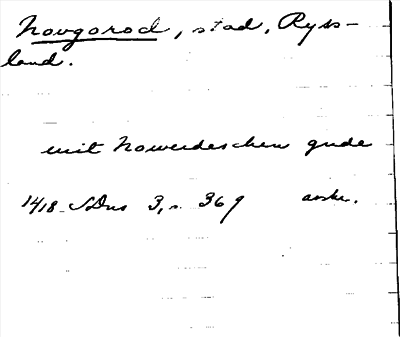 Novgorod, stad, Ryss-
land.
mit Nowerdeschen gude
1418 SDns 3, s. 369 avskr.